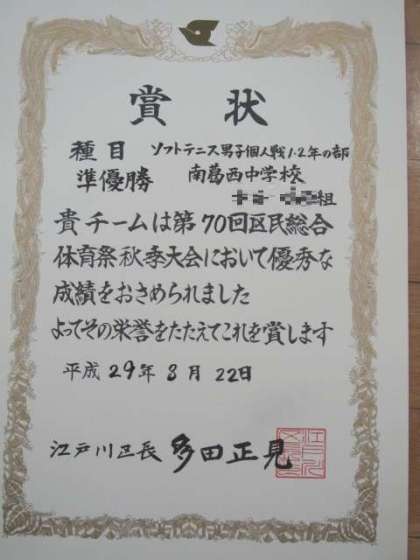 賞状
種目 ソフトテニス男子個人戦1.2年の部
準優勝 南葛西中学校
組
貴チームは第70回区民総合
体育祭秋季大会において優秀な
成績をおさめられました
よってその栄誉をたたえてこれを賞します
平成29年8月22日
江戸川区長 多田正見